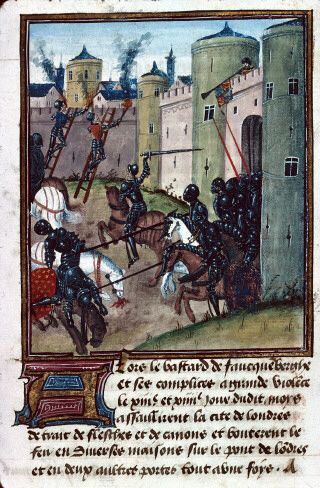 Lors le bastard de faucqueberghe
et ses complices a grande violēce
le xiiie et xiiiie Jour dudit moys
assaillirent la cite de londres
de trait de flesches et de canons et bouterent le
feu en diverses maisons sur le pont de lōdres
et en deux aultres portes tout a une foys. A